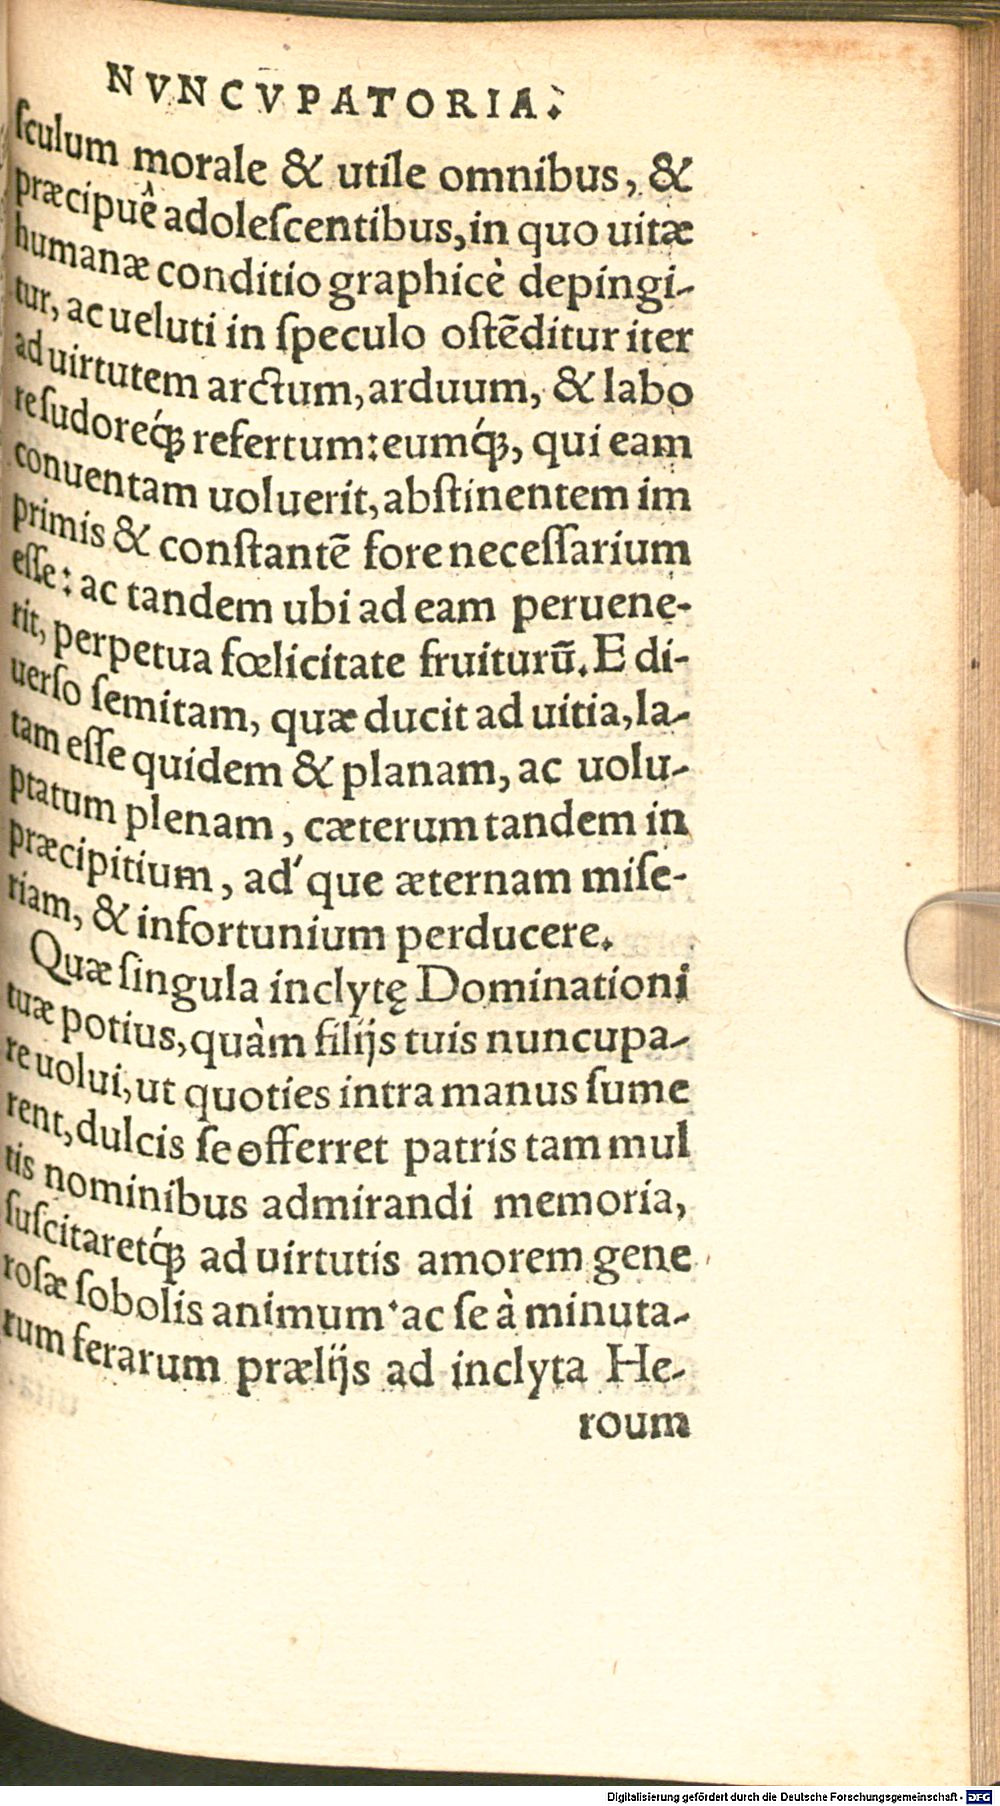 NVNCVPATORIA.
ſculum morale & utile omnibus, &
præcipuê adoleſcentibus, in quo uitæ
humanæ conditio graphicè depingi-
tur, ac ueluti in ſpeculo oſtẽditur iter
ad uirtutem arctum, arduum, & labo
re ſudoreq́ꝫ refertum: eumq́ꝫ, qui eam
conuentam uoluerit, abſtinentem im
primis & conſtantẽ fore neceſſarium
eſſe: ac tandem ubi ad eam peruene-
rit, perpetua fœlicitate fruiturũ. E di-
uerſo ſemitam, quæ ducit ad uitia, la-
tam eſſe quidem & planam, ac uolu-
ptatum plenam, cæterum tandem in
præcipitium, ad'que æternam miſe-
riam, & infortunium perducere.
Quæ ſingula inclytę Dominationi
tuæ potius, quàm filijs tuis nuncupa-
re uolui, ut quoties intra manus ſume
rent, dulcis ſe offerret patris tam mul
tis nominibus admirandi memoria,
ſuſcitaretq́ꝫ ad uirtutis amorem gene
roſæ ſobolis animum· ac ſe à minuta-
rum ferarum prælijs ad inclyta He-
roum
Digitalisierung gefördert durch die Deutsche Forschungsgemeinschaft - DFG